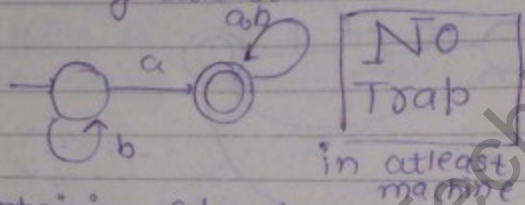 a,b
a
b
No
Trap
in atleast
machine